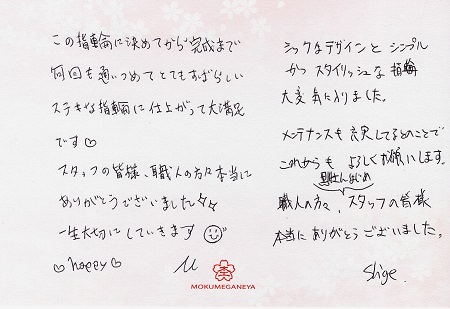 この指輪に決めてから完成まで
何回も通いつめてとてもすばらしい
ステキな指輪に仕上がって大満足
です♡
スタッフの皆様、職人の方々本当に
ありがとうございました
一生大切にしていきます
♡happy♡
シックなデザインと シンプル
かつ スタイリッシュな 指輪
大変 気に入りました。
メンテナンスも 充実してるとのことで
これからも よろしくお願いします。
はじめ
職人の方々、スタッフの皆様
本当に ありがとうございました。
Shige.
MOKUMEGANEYA